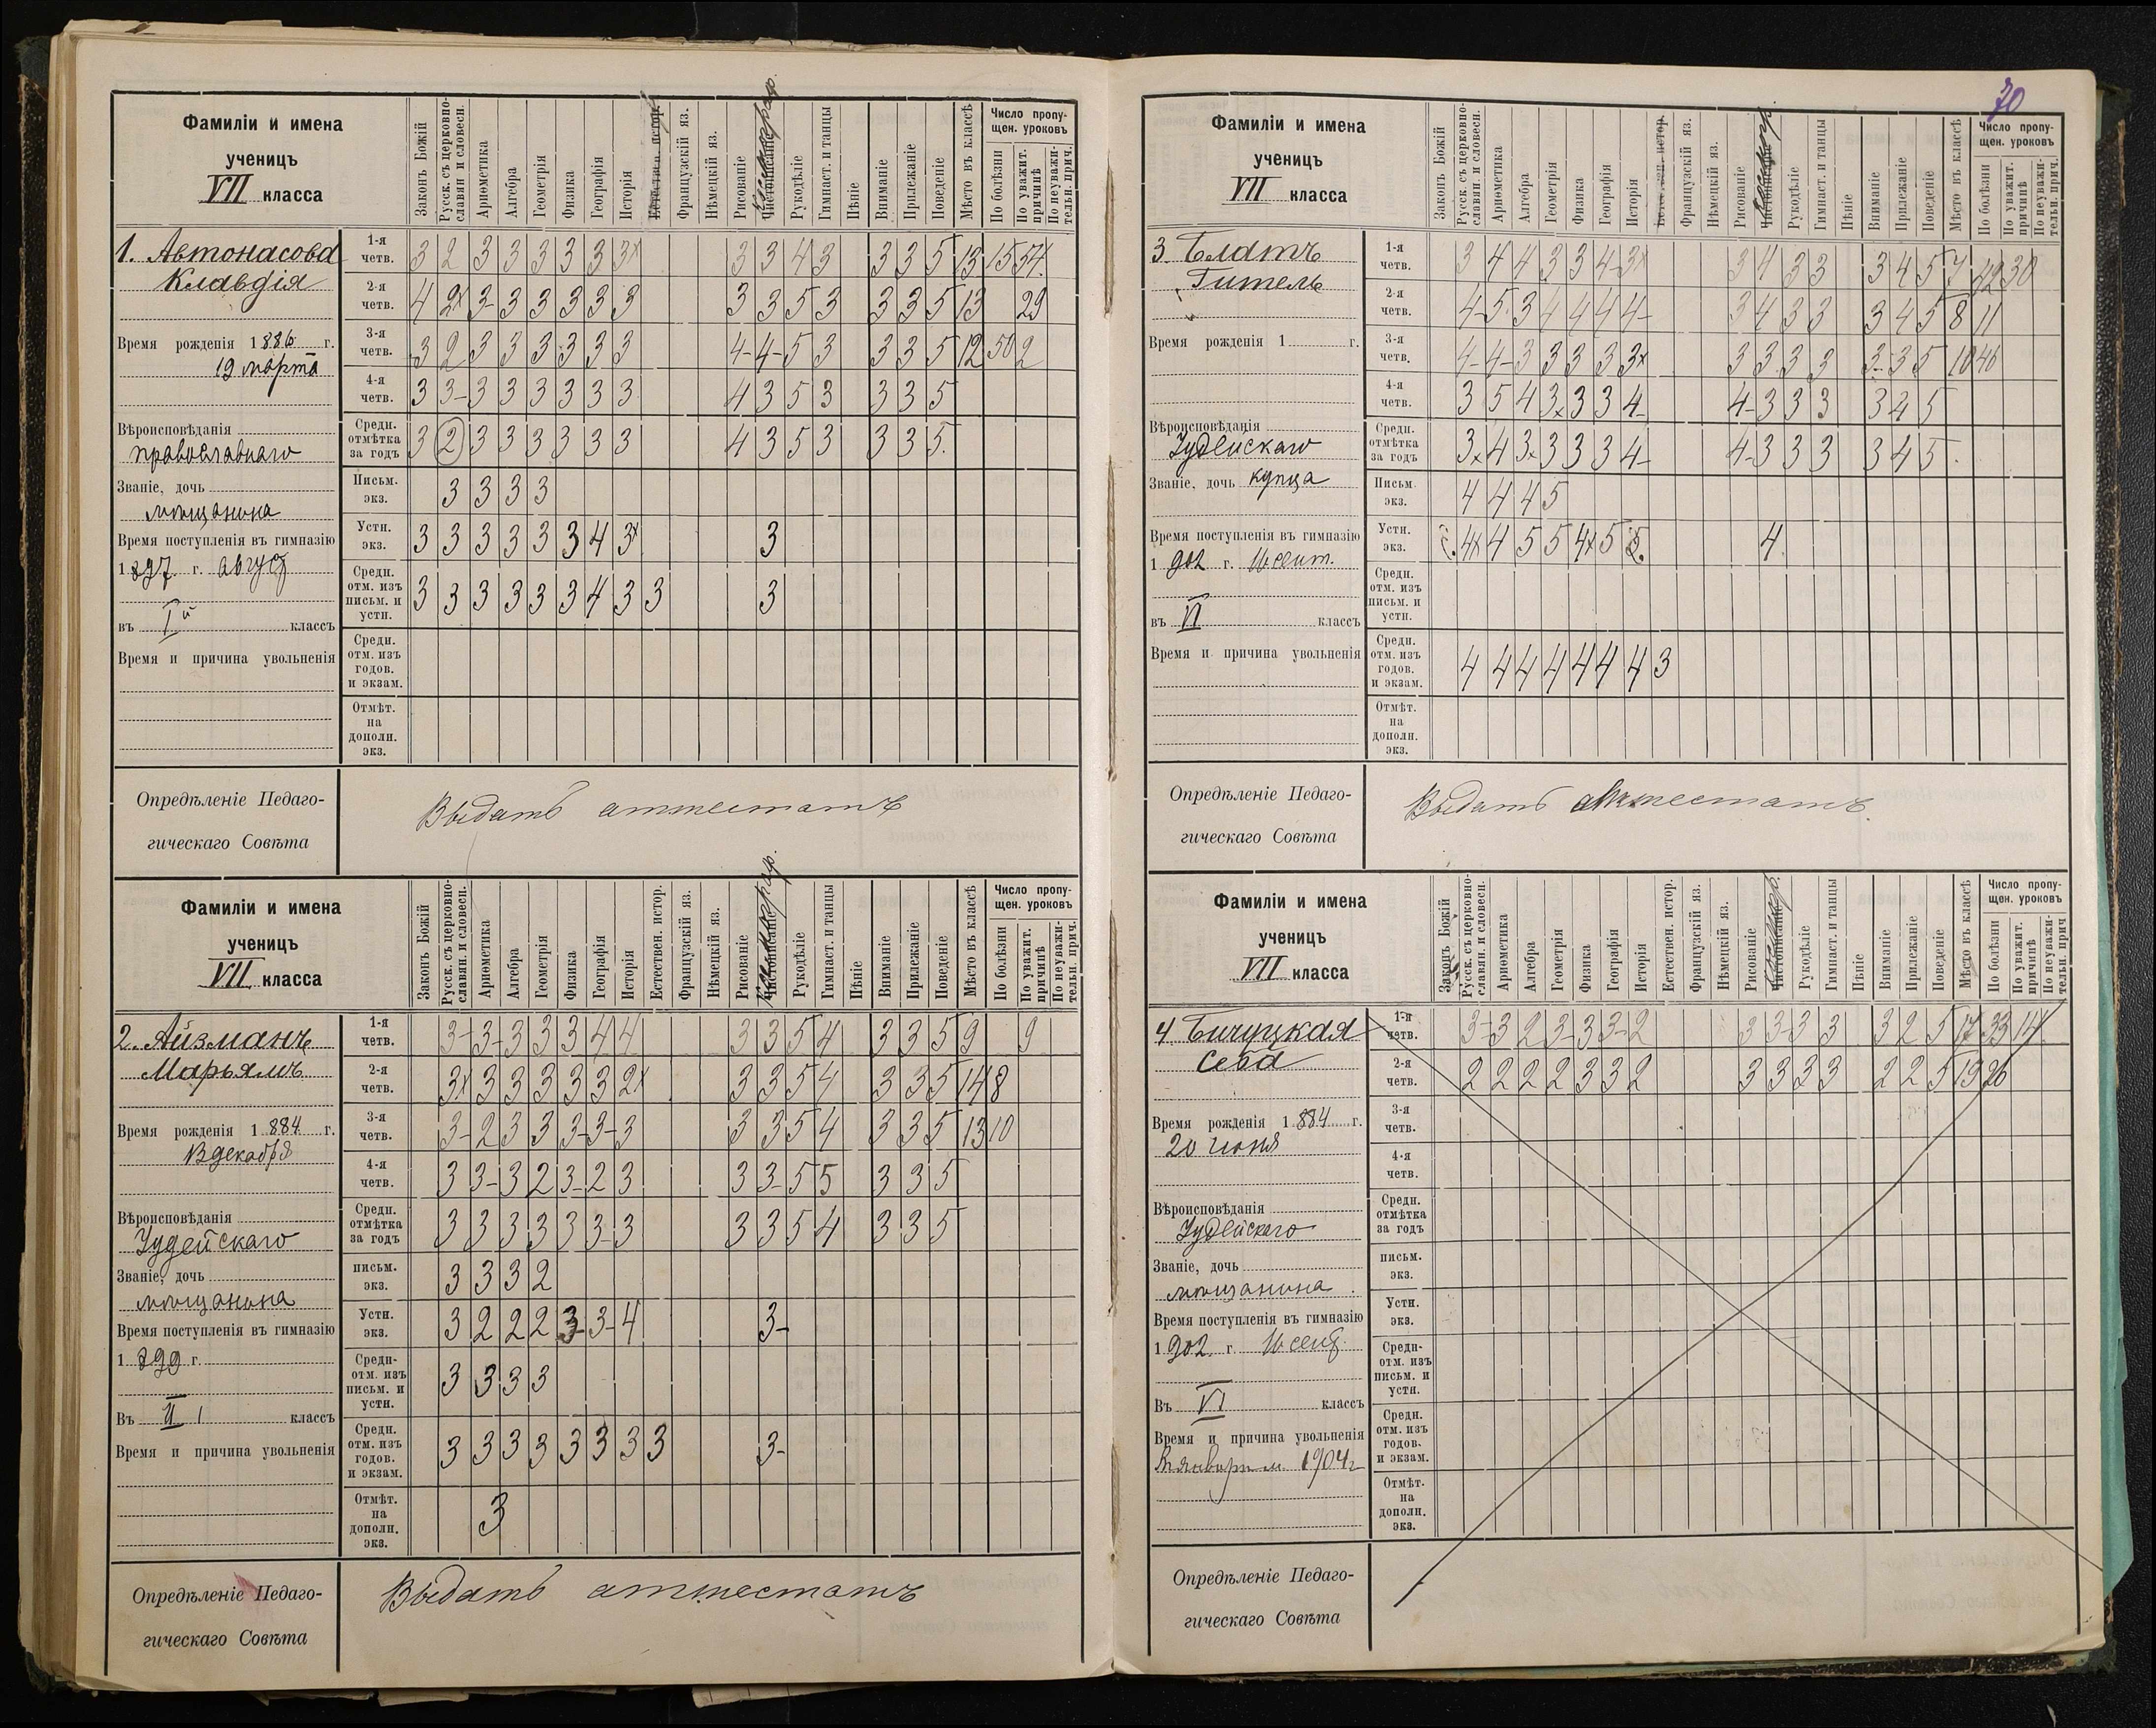 Фамиліи и имена
ученицъ
VII класса
Законъ Божій
Русск. съ церковно-
славян. и словесн.
Ариѳметика
Алгебра
Геометрія
Физика
Географія
Исторія
Естествен. истор.
Французскій яз.
Нѣмецкій яз.
Рисованіе
Чистописаніе
Рукодѣліе
Гимнаст. и танцы
Пѣніе
Вниманіе
Прилежаніе
Поведеніе
Мѣсто въ классѣ
Число пропу-
щен. уроковъ
По болѣзни
По уважит.
причинѣ
По неуважи-
тельн. прич.
1. Автонасова
Клавдія
Время рожденія 1886 г.
19 марта
Вѣроисповѣданія
православнаго
Званіе, дочь
мѣщанина
Время поступленія въ гимназію
1897 г. август
въ Iй классъ
Время и причина увольненія
1-я четв. 3 2 3 3 3 3 3 3x 3 3 4 3 3 3 5 13 15 54
2-я четв. 4 2x 3- 3 3 3 3 3 3 3 5 3 3 3 5 13 29
3-я четв. 3 2 3 3 3 3 3 3 4- 4- 5 3 3 3 5 12 50 2
4-я четв. 3 3- 3 3 3 3 3 3 4 3 5 3 3 3 5
Средн. отмѣтка за годъ 3 2 3 3 3 3 3 3 4 3 5 3 3 3 5
Письм. экз. 3 3 3 3
Устн. экз. 3 3 3 3 3 3 4 3x 3
Средн. отм. изъ письм. и устн. 3 3 3 3 3 3 4 3 3 3
Средн. отм. изъ годов. и экзам.
Отмѣт. на дополн. экз.
Опредѣленіе Педаго-
гическаго Совѣта
Выдать аттестатъ
Фамиліи и имена
ученицъ
VII класса
Законъ Божій
Русск. съ церковно-
славян. и словесн.
Ариѳметика
Алгебра
Геометрія
Физика
Географія
Исторія
Естествен. истор.
Французскій яз.
Нѣмецкій яз.
Рисованіе
Чистописаніе
Рукодѣліе
Гимнаст. и танцы
Пѣніе
Вниманіе
Прилежаніе
Поведеніе
Мѣсто въ классѣ
Число пропу-
щен. уроковъ
По болѣзни
По уважит.
причинѣ
По неуважи-
тельн. прич.
2. Айзманъ
Марьямъ
Время рожденія 1884 г.
декабря
Вѣроисповѣданія
Іудейскаго
Званіе, дочь
мѣщанина
Время поступленія въ гимназію
1899 г.
Въ II классъ
Время и причина увольненія
1-я четв. 3- 3- 3 3 3 4 4 3 3 5 4 3 3 5 9 9
2-я четв. 3x 3 3 3 3 3 2x 3 3 5 4 3 3 5 14 8
3-я четв. 3- 2 3 3 3- 3- 3 3 3 5 4 3 3 5 13 10
4-я четв. 3 3- 3 2 3- 2 3 3 3- 5 5 3 3 5
Средн. отмѣтка за годъ 3 3 3 3 3 3- 3 3 3 5 4 3 3 5
письм. экз. 3 3 3 2
Устн. экз. 3 2 2 2 3- 3- 4 3-
Средн- отм. изъ письм. и устн. 3 3 3 3
Средн. отм. изъ годов. и экзам. 3 3 3 3 3 3 3 3 3-
Отмѣт. на дополн. экз. 3
Опредѣленіе Педаго-
гическаго Совѣта
Выдать аттестатъ
70
Фамиліи и имена
ученицъ
VII класса
Законъ Божій
Русск. съ церковно-
славян. и словесн.
Ариѳметика
Алгебра
Геометрія
Физика
Географія
Исторія
Естествен. истор.
Французскій яз.
Нѣмецкій яз.
Рисованіе
Чистописаніе
Рукодѣліе
Гимнаст. и танцы
Пѣніе
Вниманіе
Прилежаніе
Поведеніе
Мѣсто въ классѣ
Число пропу-
щен. уроковъ
По болѣзни
По уважит.
причинѣ
По неуважи-
тельн. прич.
3. Блатъ
Гитель
Время рожденія 1 г.
Вѣроисповѣданія
Іудейскаго
Званіе, дочь купца
Время поступленія въ гимназію
1902 г. 16 сент.
въ VI классъ
Время и причина увольненія
1-я четв. 3 4 4 3 3 4 3x 3 4 3 3 3 4 5 7 42 30
2-я четв. 4- 5 3 4 4 4 4- 3 4 3 3 3 4 5 8 11
3-я четв. 4- 4- 3 3 3 3 3x 3 3 3 3 3- 3 5 10 46
4-я четв. 3 5 4 3x 3 3 4- 4- 3 3 3 3 4 5
Средн. отмѣтка за годъ 3x 4 3x 3 3 3 4- 4- 3 3 3 3 4 5
Письм. экз. 4 4 4 5
Устн. экз. 4x 4 5 5 4x 5 5 4
Средн. отм. изъ письм. и устн.
Средн. отм. изъ годов. и экзам. 4 4 4 4 4 4 4 3
Отмѣт. на дополн. экз.
Опредѣленіе Педаго-
гическаго Совѣта
Выдать аттестатъ.
Фамиліи и имена
ученицъ
VII класса
Законъ Божій
Русск. съ церковно-
славян. и словесн.
Ариѳметика
Алгебра
Геометрія
Физика
Географія
Исторія
Естествен. истор.
Французскій яз.
Нѣмецкій яз.
Рисованіе
Чистописаніе
Рукодѣліе
Гимнаст. и танцы
Пѣніе
Вниманіе
Прилежаніе
Поведеніе
Мѣсто въ классѣ
Число пропу-
щен. уроковъ
По болѣзни
По уважит.
причинѣ
По неуважи-
тельн. прич
4 Бичуцкая
Сева
Время рожденія 1884 г.
20 іюня
Вѣроисповѣданія
Іудейскаго
Званіе, дочь
мѣщанина
Время поступленія въ гимназію
1902 г. 16 сент.
Въ VI классъ
Время и причина увольненія
1904 г
1-я четв. 3- 3 2 3- 3 3- 2 3 3- 3 3 3 2 5 17 33 14
2-я четв. 2 2 2 2 3 3 2 3 3 3 3 2 2 5 19 26
3-я четв.
4-я четв.
Средн. отмѣтка за годъ
письм. экз.
Устн. экз.
Средн- отм. изъ письм. и устн.
Средн. отм. изъ годов. и экзам.
Отмѣт. на дополн. экз.
Опредѣленіе Педаго-
гическаго Совѣта